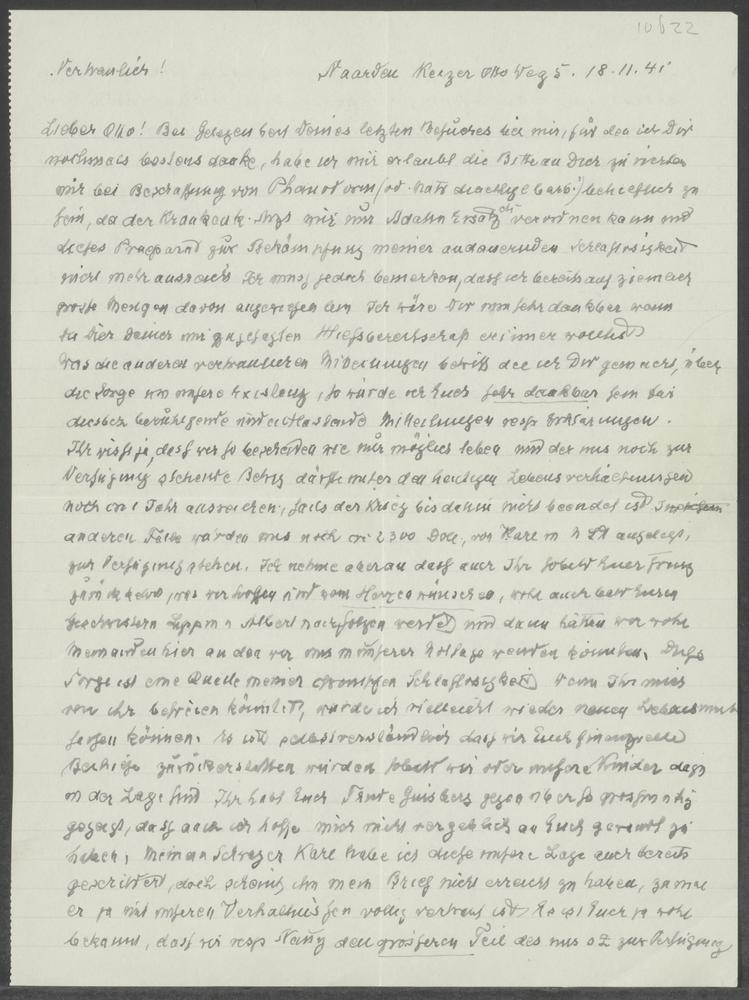 10622
Vertraulich! Naarden Keizer Otto Weg 5. 18.11.41
Lieber Otto! Bei Gelegenheit Deines letzten Besuches bei mir, für den ich Dir
nochmals bestens danke, habe ich mir erlaubt die Bitte an Dich zu richten
mir bei Beschaffung von Phanodorm behilflich zu
sein, da der Krankenk. Arzt mir nur Adalin Ersatz verordnen kann und
dieses Praeparat zur Bekämpfung meiner andauernden Schlaflosigkeit
nicht mehr ausreicht Ich muss jedoch bemerken, dass ich bereits auf ziemlich
grosse Mengen davon angewiesen bin Ich wäre Dir nun sehr dankbar wenn
Du Dich Deiner mir zugesagten Hilfsbereitschaft erinnern wolltest
Was die anderen vertraulichen Mitteilungen betrifft die ich Dir gemacht, über
die Sorge um unsere Existenz, so würde ich Euch sehr dankbar sein bei
diesbez beruhigende und entlastende Mitteilungen resp Erklärungen.
Ihr wisst ja, dass wir so bescheiden wie nur möglich leben und der uns noch zur
Verfügung stehende Betrag dürfte unter den heutigen Lebensverhältnissen
noch ca 1 Jahr ausreichen, falls der Krieg bis dahin nicht beendet ist Im
anderen Falle würden uns noch ca 2300 Doll, von Karl in angelegt,
zur Verfügung stehen. Ich nehme aber an dass auch Ihr sobald Euer Franz
was wir hoffen und vom Herzen wünschen, wohl auch bald Euren
Geschwistern Albert nachfolgen werdet und dann hätten wir wohl
Niemanden hier an den wir uns in unserer Notlage wenden könnten. Diese
Sorge ist eine Quelle meiner chronischen Schlaflosigkeit Wenn Ihr mich
von ihr befreien könntet, würde ich vielleicht wieder neuen Lebensmut
fassen können. Es ist selbstverständlich dass wir Euch finanzielle
Beihilfe zurückerstatten würden sobald wir oder unsere Kinder dazu
in der Lage sind Ihr habt Euch Tante gegenüber so grosszügig
gezeigt, dass auch ich hoffe mich nicht vergeblich an Euch gewandt zu
haben, Meinem Schwager Karl habe ich diese unsere Lage auch bereits
geschildert, doch scheint ihn mein Brief nicht erreicht zu haben, zumal
er ja mit unseren Verhältnissen völlig vertraut ist Es ist Euch ja wohl
bekannt, dass wir resp Nanny den grösseren Teil des uns s Z zur Verfügung